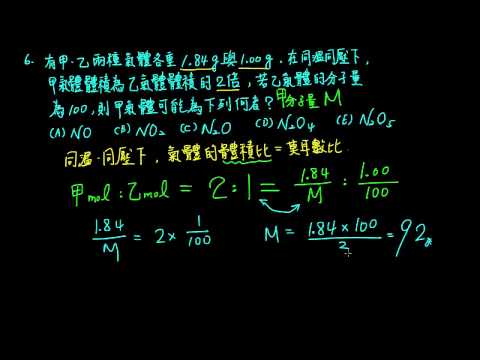 6. 有甲.乙兩種氣體各重 1.84g 與 1.00g. 在同溫同壓下,
甲氣體體積為乙氣體體積的 2倍, 若乙氣體的分子量
為 100, 則甲氣體可能為下列何者? 甲分子量 M
(A) NO (B) NO₂ (C) N₂O (D) N₂O₄ (E) N₂O₅
同溫.同壓下, 氣體的體積比 = 莫耳數比.
甲mol : 乙mol = 2 : 1 = 1.84/M : 1.00/100
1.84/M = 2 × 1/100 M = 1.84 × 100/2 = 92